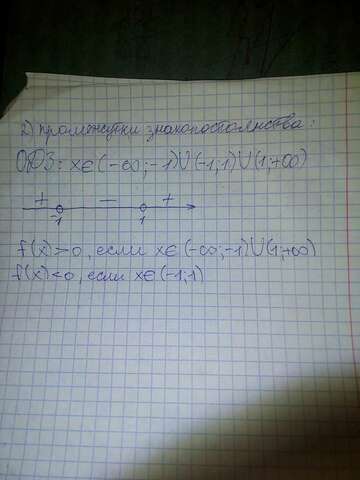 2) Промежутки знакопостоянства:
ОДЗ: x∈(-∞;-1)∪(-1;1)∪(1;+∞)
+ — +
-1 1
f(x)>0, если x∈(-∞;-1)∪(1;+∞)
f(x)<0, если x∈(-1;1)